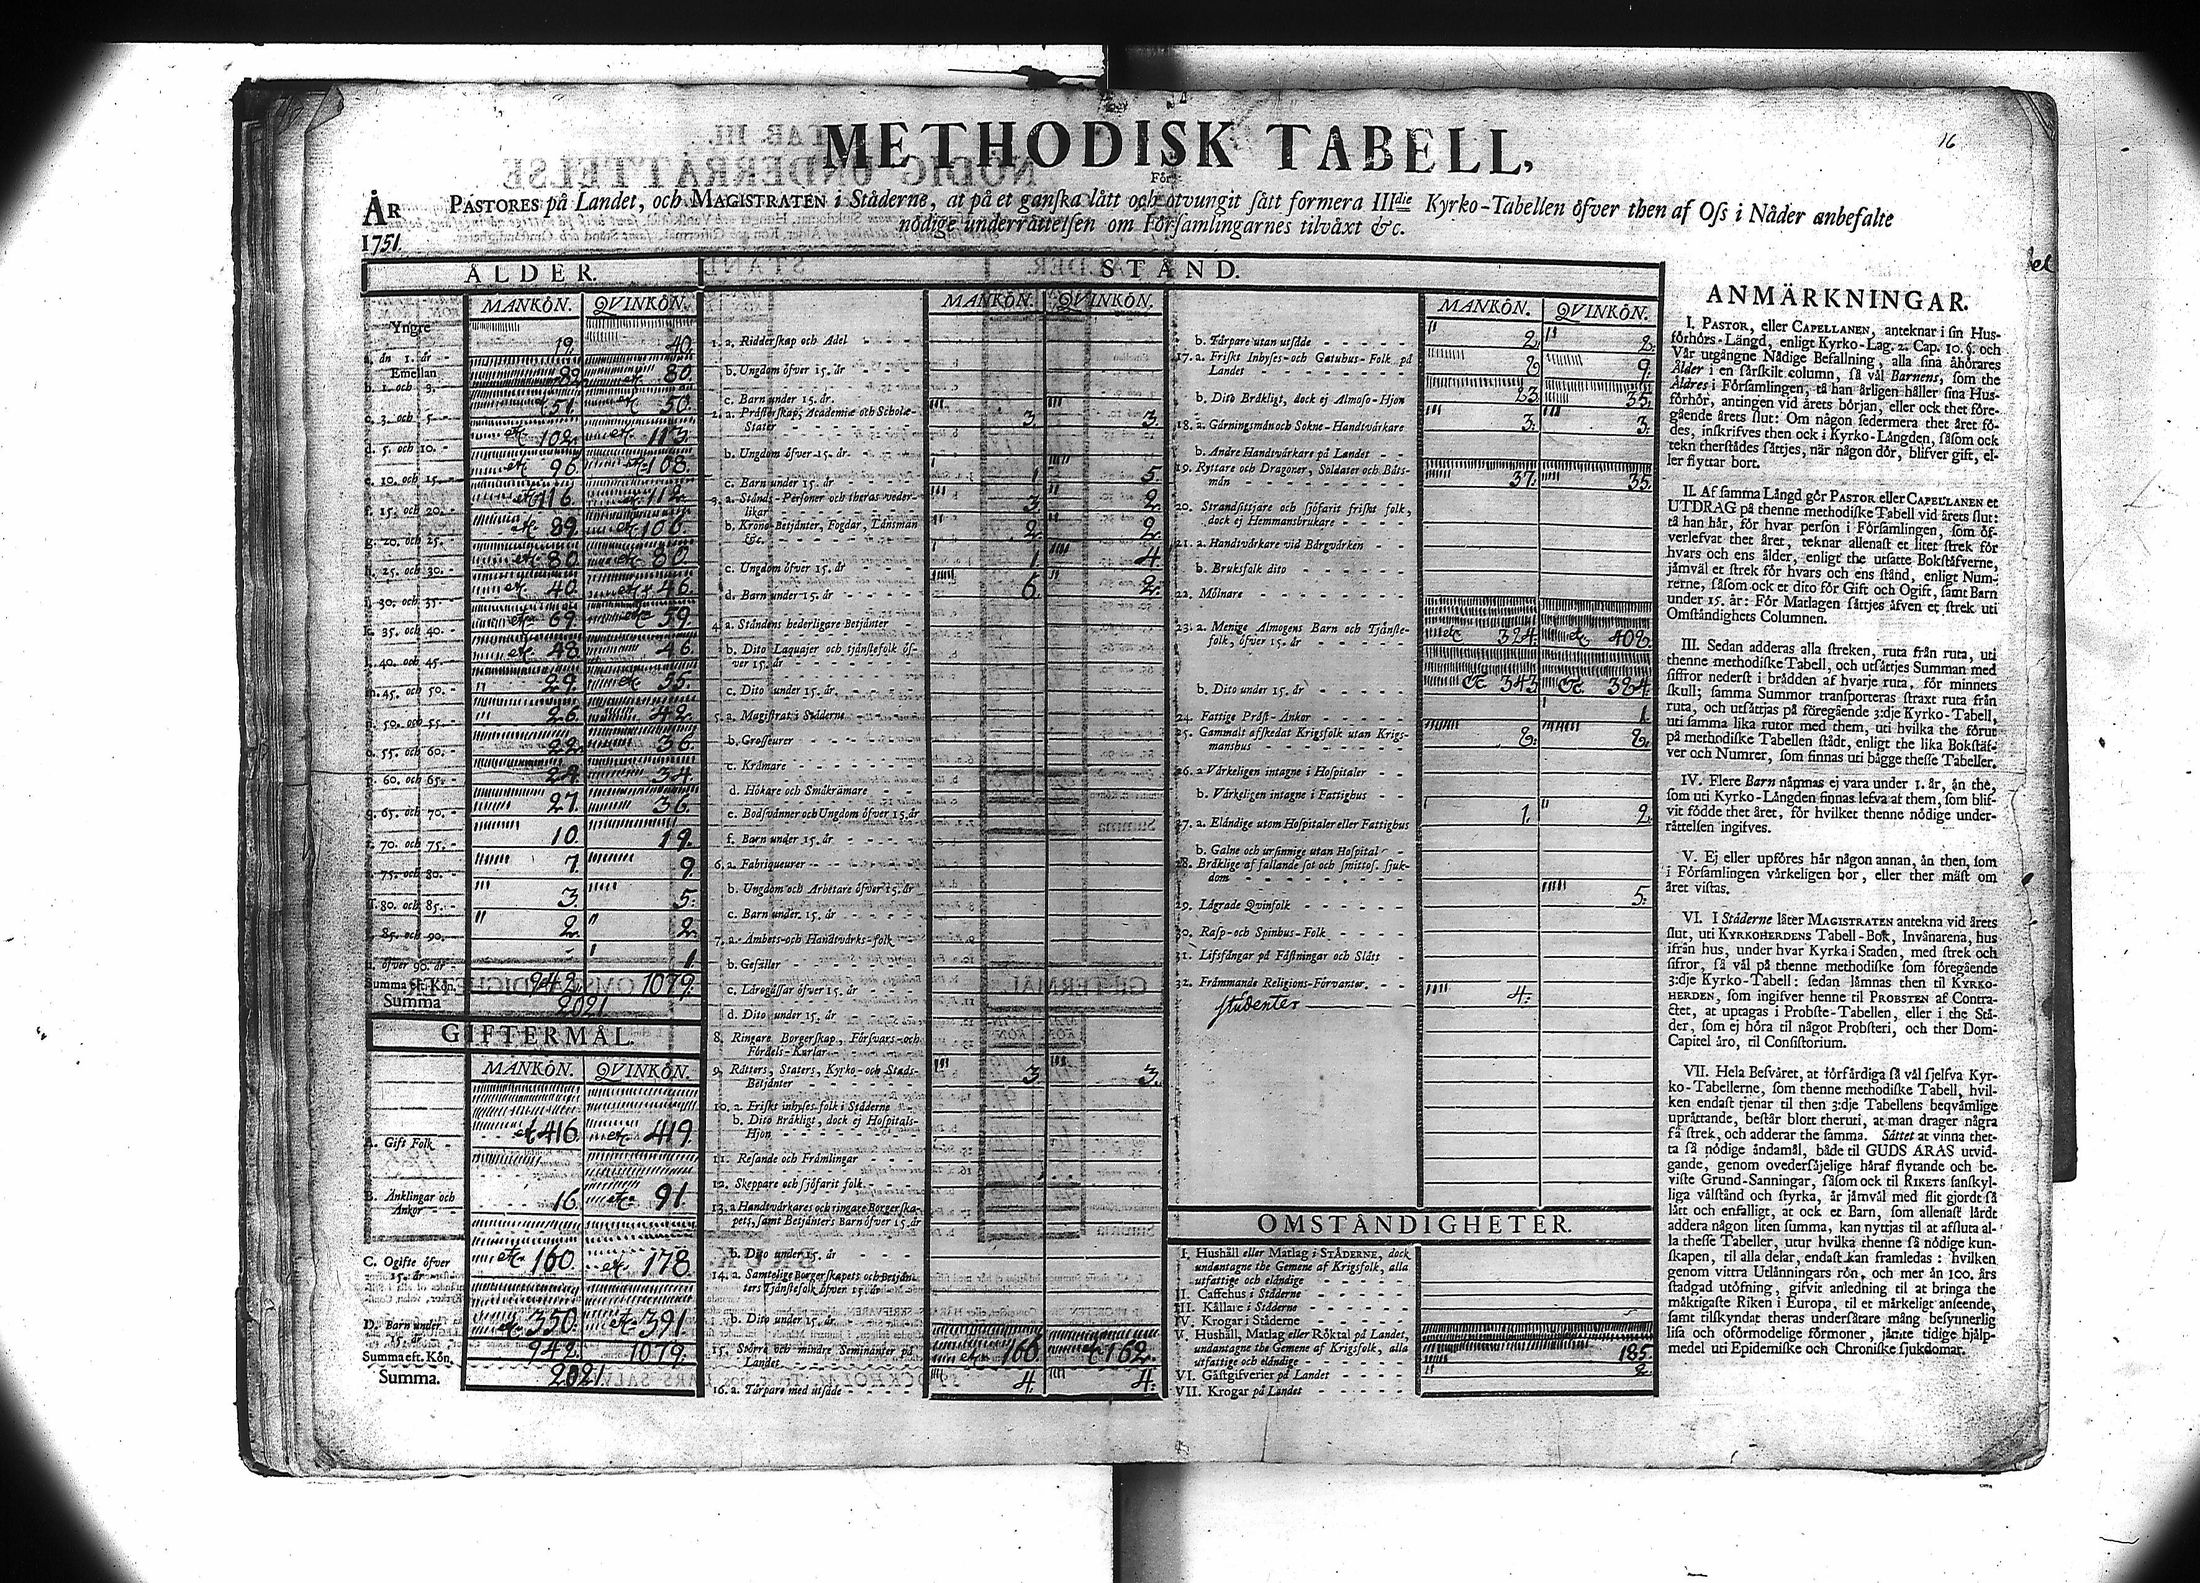 16
METHODISK TABELL,
För
ÅR PASTORES på Landet, och MAGISTRATEN i Städerne, at på et ganska lått och otvungit sått formera IIIdie Kyrko-Tabellen öfver then af Oss i Nåder anbefalte
1751. nödige underråttelsen om Församlingarnes tilvåxt &c.
ÅLDER.
MANKÖN. QVINKÖN.
Yngre
a. än 1. år - 19. 40.
Emellan
b. 1. och 3. 82. 80
c. 3. och 5. - etc 51. etc 50.
d. 5. och 10. - etc 102. etc 113.
e. 10. och 15. - etc 96. etc 108.
f. 15. och 20. - etc 116. etc 112.
g. 20. och 25. etc 89. etc 106.
h. 25. och 30. - etc 80. etc 80.
i. 30. och 35. - etc 40. etc 46.
k. 35. och 40. - etc 69. etc 59.
l. 40. och 45. etc 48. 46.
m. 45. och 50. - 29. etc 55.
n. 50. och 55. - 26. 42.
o. 55. och 60. - 22. 36.
p. 60. och 65. - 28. 34.
q. 65. och 70. - 27. 36.
r. 70. och 75. - 10. 19.
s. 75. och 80. - 7. 9.
t. 80. och 85. - 3. 5.
u. 85. och 90. - 2. 2.
x. öfver 90. år - - 1.
Summa eft. Kön. 942. 1079.
Summa 2021.
GIFTERMÅL.
MANKÖN. QVINKÖN.
A. Gift Folk - etc 416. etc 419.
B. Änklingar och
Änkor - - 16. etc 91.
C. Ogifte öfver
15. år etc 160. etc 178
D. Barn under
15. år. etc 350. etc 391.
Summa eft. Kön. 942. 1079.
Summa. 2021.
STÅND.
MANKÖN. QVINKÖN.
1. a. Ridderskap och Adel
b. Ungdom öfver 15. år
c. Barn under 15. år.
2. a. Prästerskap, Academiæ och Scholæ-
Stater 3. 3.
b. Ungdom öfver 15. år
c. Barn under 15. år 1. 5.
3. a. Stånds-Personer och theras veder-
likar 3. 2.
b. Krono-Betjänter, Fogdar, Länsmän
&c. 2. 2.
c. Ungdom öfver 15. år 1. 4.
d. Barn under 15. år 6. 2.
4. a. Ståndens hederligare Betjänter
b. Dito Laquajer och tjänstefolk öf-
ver 15. år
c. Dito under 15. år.
5. a. Magistrat i Städerne
b. Grosseurer
c. Krämare
d. Hökare och Småkrämare
e. Bodsvänner och Ungdom öfver 15. år
f. Barn under 15. år
6. a. Fabriqueurer
b. Ungdom och Arbetare öfver 15. år
c. Barn under. 15. år
7. a. Ämbets-och Handtvärks-folk
b. Gesäller
c. Lärogåssar öfver 15. år
d. Dito under 15. år
8. Ringare Borgerskap, Försvars-och
Fördels-Karlar
9. Rätters, Staters, Kyrko-och Stads-
Betjänter 3. 3.
10. a. Friskt inhyses-folk i Städerne
b. Dito Bräkligt, dock ej Hospitals-
Hjon
11. Resande och Främlingar
12. Skeppare och sjöfarit folk
13. a Handtvärkares och ringare Borgerska-
pets, samt Betjänters Barn öfver 15. år
b. Dito under 15. år
14. a. Samtelige Borgerskapets och Betjän-
ters Tjänstefolk öfver 15. år
b. Dito under 15. år.
15. Större och mindre Seminanter på
Landet etc 160. etc 162.
16. a. Tårpare med utsäde 4. 4.
MANKÖN. QVINKÖN.
b. Tårpare utan utsäde 2. 2.
17. a. Friskt Inhyses-och Gatuhus-Folk på
Landet 8 9.
b. Dito Bräkligt, dock ej Almoso-Hjon 23. 35.
18. a. Gärningsmän och Sokne-Handtvärkare 3. 3.
b. Andre Handtvärkare på Landet
19. Ryttare och Dragoner, Soldater och Båts-
män 37. 35.
20. Strandsittjare och sjöfarit friskt folk,
dock ej Hemmansbrukare
21. a. Handtvärkare vid Bärgvärken
b. Bruksfolk dito
22. Mölnare
23. a. Menige Almogens Barn och Tjänste-
folk, öfver 15. år etc 324. etc 402.
b. Dito under 15. år &c. 343. &c. 384.
24. Fattige Präst-Änkor 1.
25. Gammalt afskedat Krigsfolk utan Krigs-
manshus 8. 8.
26. a Värkeligen intagne i Hospitaler
b. Värkeligen intagne i Fattighus
27. a. Eländige utom Hospitaler eller Fattighus 1. 2.
b. Galne och ursinnige utan Hospital
28. Bräklige af fallande sot och smittos. sjuk-
dom
29. Lägrade Qvinfolk 5.
30. Rasp-och Spinhus-Folk
31. Lifsfångar på Fästningar och Slått
32. Främmande Religions-Förvanter,
Studenter 4.
OMSTÅNDIGHETER.
I. Hushåll eller Matlag i STÄDERNE, dock
undantagne the Gemene af Krigsfolk, alla
utfattige och eländige
II. Caffehus i Städerne
III. Källare i Städerne
IV. Krogar i Städerne
V. Hushåll, Matlag eller Röktal på Landet,
undantagne the Gemene af Krigsfolk, alla
utfattige och eländige 185.
VI. Gästgifverier på Landet 2
VII. Krogar på Landet
ANMÄRKNINGAR.
I. PASTOR, eller CAPELLANEN, anteknar i sin Hus-
förhörs-Längd, enligt Kyrko-Lag. 2. Cap. 10. §. och
Vår utgångne Nådige Befallning, alla sina åhörares
Ålder i en särskilt column, så väl Barnens, som the
Äldres i Församlingen, tå han årligen håller sina Hus-
förhör, antingen vid årets början, eller ock thet före-
gående årets slut: Om någon sedermera thet året fö-
des, inskrifves then ock i Kyrko-Längden, såsom ock
tekn therstädes sättjes, när någon dör, blifver gift, el-
ler flyttar bort.
II. Af samma Längd gör PASTOR eller CAPELLANEN et
UTDRAG på thenne methodiske Tabell vid årets slut:
tå han här, för hvar person i Församlingen, som öf-
verlefvat thet året, teknar allenast et litet strek för
hvars och ens ålder, enligt the utsatte Bokstäfverne,
jämväl et strek för hvars och ens stånd, enligt Num-
rerne, såsom ock et dito för Gift och Ogift, samt Barn
under 15. år: För Matlagen sättjes äfven et strek uti
Omständighets Columnen.
III. Sedan adderas alla streken, ruta från ruta, uti
thenne methodiske Tabell, och utsättjes Summan med
siffror nederst i brädden af hvarje ruta, för minnets
skull; samma Summor transporteras straxt ruta från
ruta, och utsättjas på föregående 3:dje Kyrko-Tabell,
uti samma lika rutor med them, uti hvilka the förut
på methodiske Tabellen städt, enligt the lika Bokstäf-
ver och Numrer, som finnas uti bägge thesse Tabeller.
IV. Flere Barn nämnas ej vara under 1. år, än the,
som uti Kyrko-Längden finnas lefva af them, som blif-
vit födde thet året, för hvilket thenne nödige under-
rättelsen ingifves.
V. Ej eller upföres här någon annan, än then, som
i Församlingen värkeligen bor, eller ther mäst om
året vistas.
VI. I Städerne låter MAGISTRATEN antekna vid årets
slut, uti KYRKOHERDENS Tabell-Bok, Invånarena, hus
ifrån hus, under hvar Kyrka i Staden, med strek och
sifror, så väl på thenne methodiske som föregående
3:dje Kyrko-Tabell: sedan lämnas then til KYRKO-
HERDEN, som ingifver henne til PROBSTEN af Contra-
ctet, at uptagas i Probste-Tabellen, eller i the Stä-
der, som ej höra til något Probsteri, och ther Dom-
Capitel äro, til Consistorium.
VII. Hela Besväret, at förfärdiga så väl sjelfva Kyr-
ko-Tabellerne, som thenne methodiske Tabell, hvil-
ken endast tjenar til then 3:dje Tabellens beqvämlige
uprättande, består blott theruti, at man drager några
få strek, och adderar the samma. Sättet at vinna thet-
ta så nödige ändamål, både til GUDS ÄRAS utvid-
gande, genom ovedersäjelige häraf flytande och be-
viste Grund-Sanningar, såsom ock til RIKETS sanskyl-
liga välstånd och styrka, är jämväl med flit gjordt så
lätt och enfalligt, at ock et Barn, som allenast lärdt
addera någon liten summa, kan nyttjas til at afsluta al-
la thesse Tabeller, utur hvilka thenne så nödige kun-
skapen, til alla delar, endast kan framledas: hvilken
genom vittra Utlänningars rön, och mer än 100. års
stadgad utöfning, gifvit anledning til at bringa the
mäktigaste Riken i Europa, til et märkeligt anseende,
samt tilskyndat theras undersåtare mång besynnerlig
lisa och oförmodelige förmoner, jämte tidige hjälp-
medel uti Epidemiske och Chroniske sjukdomar.